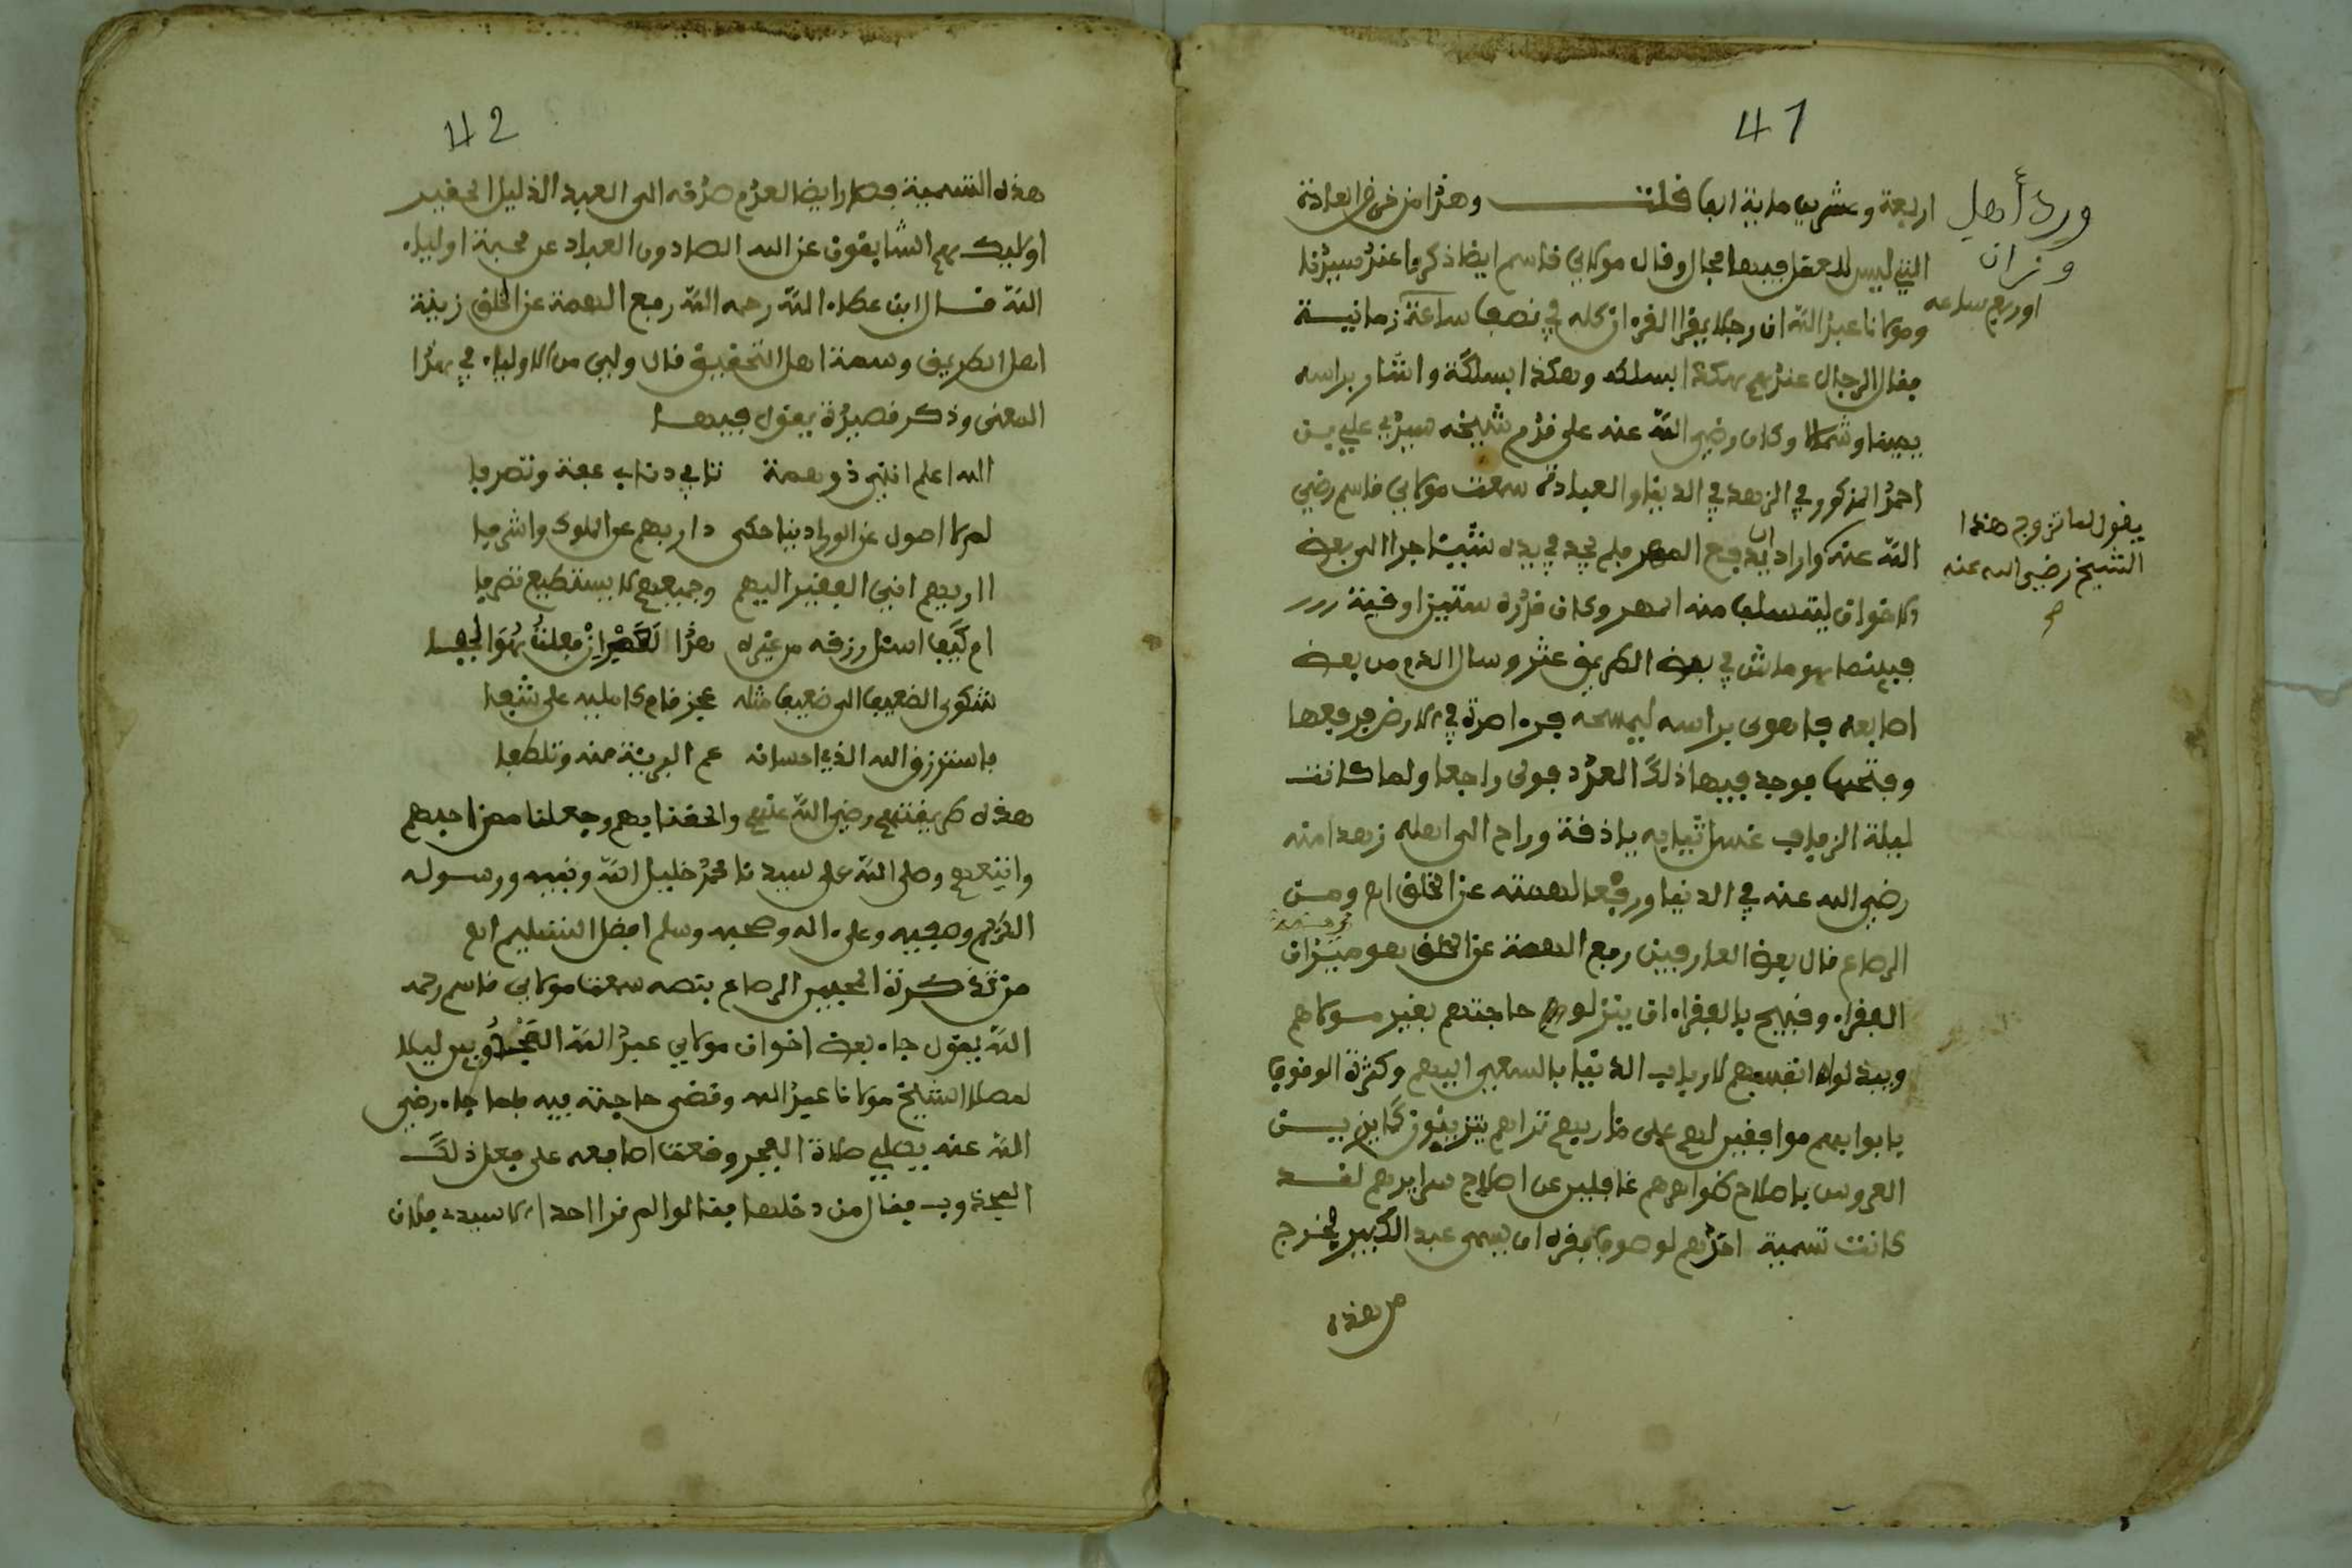 41
اربعة وعشرين ماية الفا قلت وهذا من خرق العادة
التي ليس للعقل فيها مجال وقال مولاي قاسم ايضا ذكر وا عند سيدنا
ومولانا عبد الله ان رجلا يقرا القرءان كله في نصف ساعة زمانية
فقال الرجال عندهم هكذا بسلكه وهكذا بسلكة واشار براسه
يمينا وشمالا وكان رضي الله عنه على قدم شيخه سيدي علي بن
احمد المذكور في الزهد في الدنيا والعبادة سمعت مولاي قاسم رضي
الله عنه واراد ان يدفع المهر فلم يجد في يده شيئا جرا الى بعض
الاخوان ليتسلف منه المهر وكان قدره ستين اوقية
فبينما هو ماش في بعض الطريق عثر وسال الدم من بعض
اصابعه فاهوى براسه ليمسحه فره اصرة في الارض فرفعها
وفتحها فوجد فيها ذلك العدد فولى راجعا ولما كانت
ليلة الزفاف غسل ثيابه باذفة وراح الى اهله زهدا منه
رضي الله عنه في الدنيا ورفعا لهمته عن الخلق اه ومن
الرصاع قال بعض العارفين رفع الهمة عن الخلق هو ميزان
الفقراء وقبيح بالفقراء ان ينزلوا حاجتهم بغير مولاهم
ويبذلوا انفسهم لارباب الدنيا بالسعي اليهم وكثرة الوقوف
بابوابهم موافقين لهم على مآربهم تراهم يتزينون كاين بين
العروس باصلاح ظواهرهم غافلين عن اصلاح سرايرهم لقد
كانت تسمية احدهم لو صوفي فقره ان يسمى عبد الكبير فخرج
من هذه
ورد أهل
وزان
او ربع ساعه
يقول لما تزوج هذا
الشيخ رضي الله عنه
42
هذه التسمية فصار ايضا لعدم صدقه الى العبد الذليل الحقير
اوليك هم السابقون عن الله الصادون العباد عن محبة اولياء
الله قال ابن عطاء الله رحمه الله رفع الهمة عن الخلق زينة
اهل الطريق وسمة اهل التحقيق قال ولي من الاولياء في هذا
المعنى وذكر قصيدة يقول فيها
الله اعلم انني ذو همة تابى الدنايا عفة وتصرفا
لم لا اصول عن الورى ديباجتي داريهم عز الملوك واشرفا
ااريهم اني الفقير اليهم وجميعهم لا يستطيع تصرفا
ام كيف اسئل رزقه من غيره هذا لعمري ان فعلت هو الجفا
شكوى الضعيف الى ضعيف مثله عجز قام كامليه على شفا
فاسترزق الله الذي احسانه عم البرية منه وتلطفا
هذه طريقتهم رضي الله عنهم والحقنا بهم وجعلنا ممن احبهم
واتبعهم وصلى الله على سيدنا محمد خليل الله ونبيه ورسوله
الكريم وصفيه وعلى اله وصحبه وسلم افضل التسليم اه
من تذكرة المحبين الرصاع بنصه سمعت مولاي قاسم رحمه
الله يقول جاء بعض اخوان مولاي عبد الله المجذوبين ليلا
لمصلا الشيخ مولانا عبد الله وقضى حاجته فيه فلما جاء رضي
الله عنه يصلي صلاة الفجر وقعت اصابعه على فعل ذلك
المجذوب فقال من دخلها فقالوا لم نرا احدا الا سيد فلان